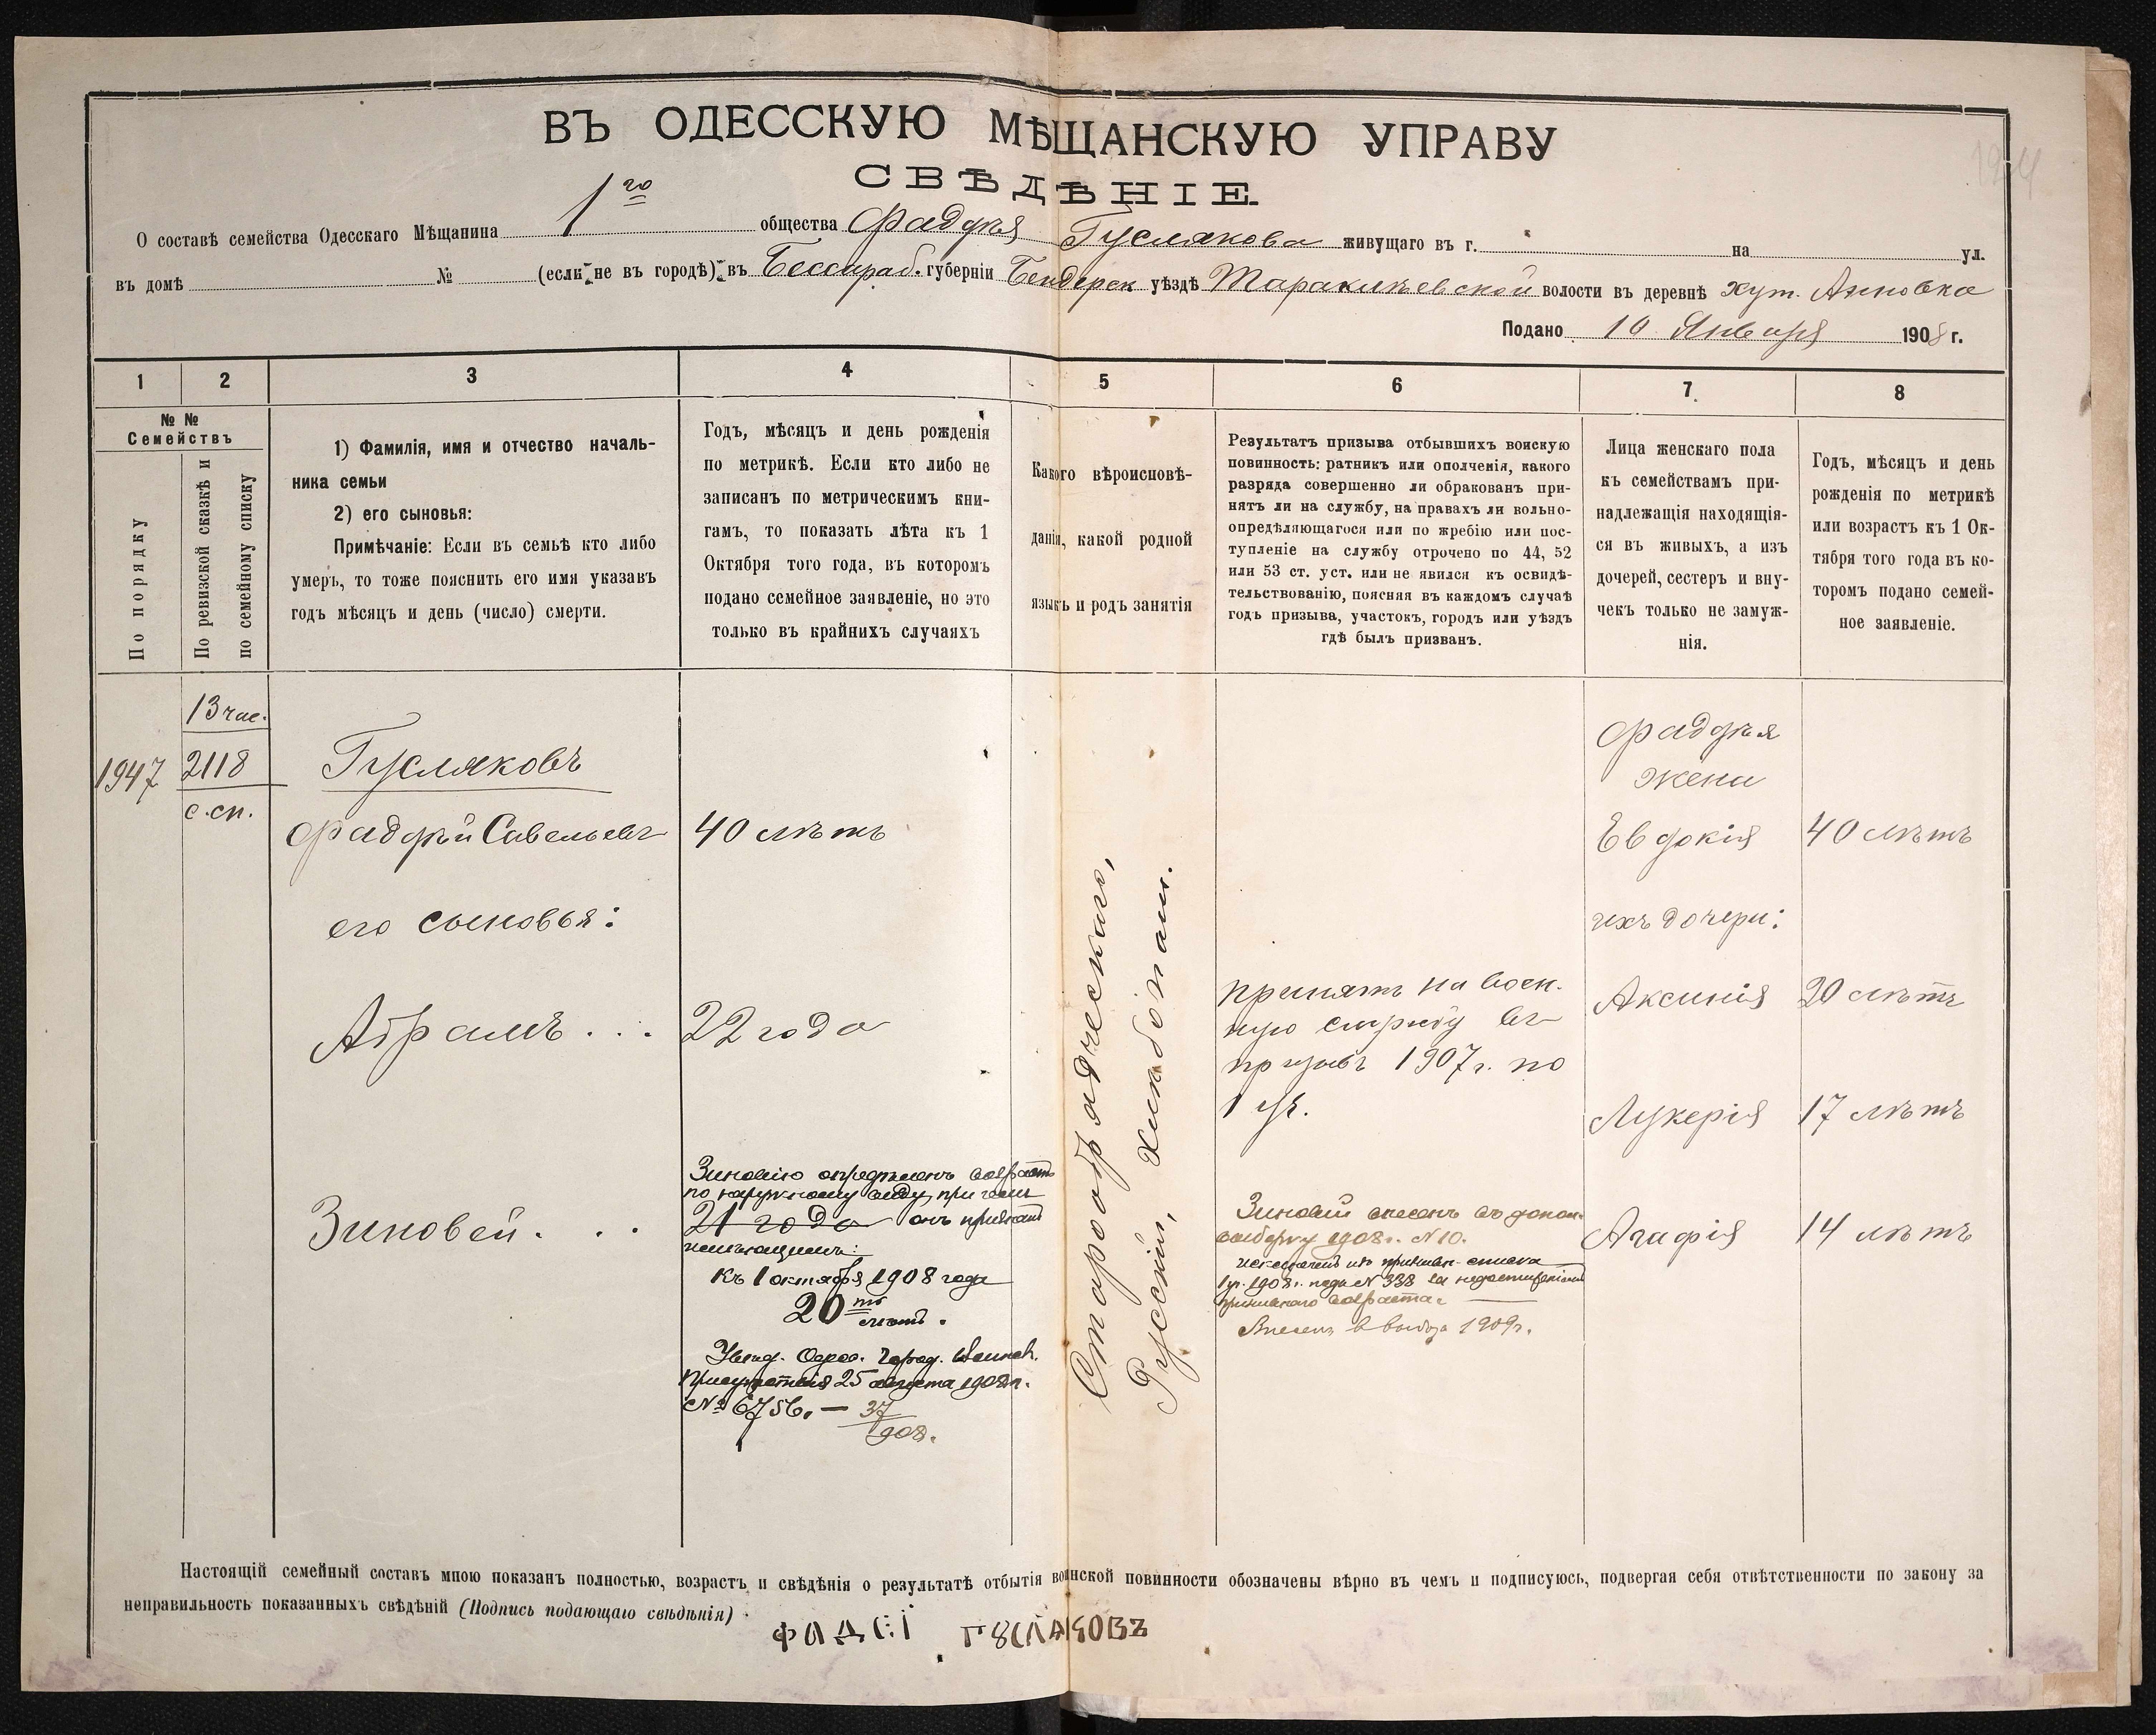 ВЪ ОДЕССКУЮ МѢЩАНСКУЮ УПРАВУ
СВѢДѢНІЕ.
О составѣ семейства Одесскаго Мѣщанина 1го общества Фаддѣя Гуслякова живущаго въ г. на ул.
въ домѣ № (если не въ городѣ) въ Бессараб. губерніи Бендерск уѣздѣ Тараклиевской волости въ деревнѣ хут. Анновка
Подано 10 Января 1908 г.
1 2 3 4 5 6 7 8
№ №
Семействъ
По порядку
По ревизской сказкѣ и
по семейному списку
1) Фамилія, имя и отчество началь-
ника семьи
2) его сыновья:
Примѣчаніе: Если въ семьѣ кто либо
умеръ, то тоже пояснить его имя указавъ
годъ мѣсяцъ и день (число) смерти.
Годъ, мѣсяцъ и день рожденія
по метрикѣ. Если кто либо не
записанъ по метрическимъ кни-
гамъ, то показать лѣта къ 1
Октября того года, въ которомъ
подано семейное заявленіе, но это
только въ крайнихъ случаяхъ
Какого вѣроисповѣ-
данія, какой родной
языкъ и родъ занятія
Результатъ призыва отбывшихъ воискую
повинность: ратникъ или ополченія, какого
разряда совершенно ли обракованъ при-
нятъ ли на службу, на правахъ ли вольно-
опредѣляющагося или по жребію или пос-
тупленіе на службу отрочено по 44, 52
или 53 ст. уст. или не явился къ освидѣ-
тельствованію, поясняя въ каждомъ случаѣ
годъ призыва, участокъ, городъ или уѣздъ
гдѣ былъ призванъ.
Лица женскаго пола
къ семействамъ при-
надлежащія находящія-
ся въ живыхъ, а изъ
дочерей, сестеръ и вну-
чекъ только не замуж-
нія.
Годъ, мѣсяцъ и день
рожденія по метрикѣ
или возрастъ къ 1 Ок-
тября того года въ ко-
торомъ подано семей-
ное заявленіе.
13 час.
1947 2118
с. сп.
Гусляковъ
Фаддѣй Савельевъ 40 лѣтъ
его сыновья:
Абрамъ . . . 22 года
Зиновей . . .
Зиновію опредѣленъ возрастъ
по наружному виду, при чемъ
21 года онъ признанъ
имѣющимъ:
къ 1 октября 1908 года
20ть лѣтъ.
Увѣд. Одес. Город. Воинск.
Присутствія 25 августа 1908 г.
№ 6756. — 37/908.
Старообрядческаго,
Русскій, хлѣбопаш.
принятъ на воен-
ную службу въ
призывъ 1907 г. по
1 уч.
Зиновій внесенъ въ допол.
выборку 1908 г. № 10.
исключенъ изъ призывн. списка
1 уч. 1908 г. подъ № 338 за недостиженіемъ
призывнаго возраста.
Внесенъ в выборк 1909 г.
Фаддѣя
жена
Евдокія 40 лѣтъ
ихъ дочери:
Аксинія 20 лѣтъ
Лукерія 17 лѣтъ
Агафія 14 лѣтъ
Настоящій семейный составъ мною показанъ полностью, возрастъ и свѣдѣнія о результатѣ отбытія воинской повинности обозначены вѣрно въ чемъ и подписуюсь, подвергая себя отвѣтственности по закону за
неправильность показанныхъ свѣдѣній (Подпись подающаго свѣдѣнія)
ФАДЕЙ ГȢСЛАКОВЪ